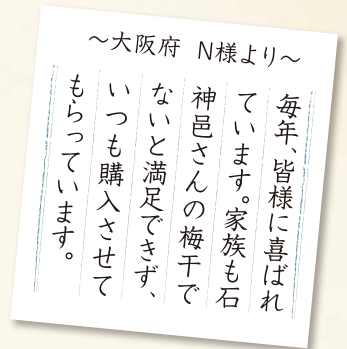 ～大阪府 N様より～
毎年、皆様に喜ばれ
ています。家族も石
神邑さんの梅干で
ないと満足できず、
いつも購入させて
もらっています。